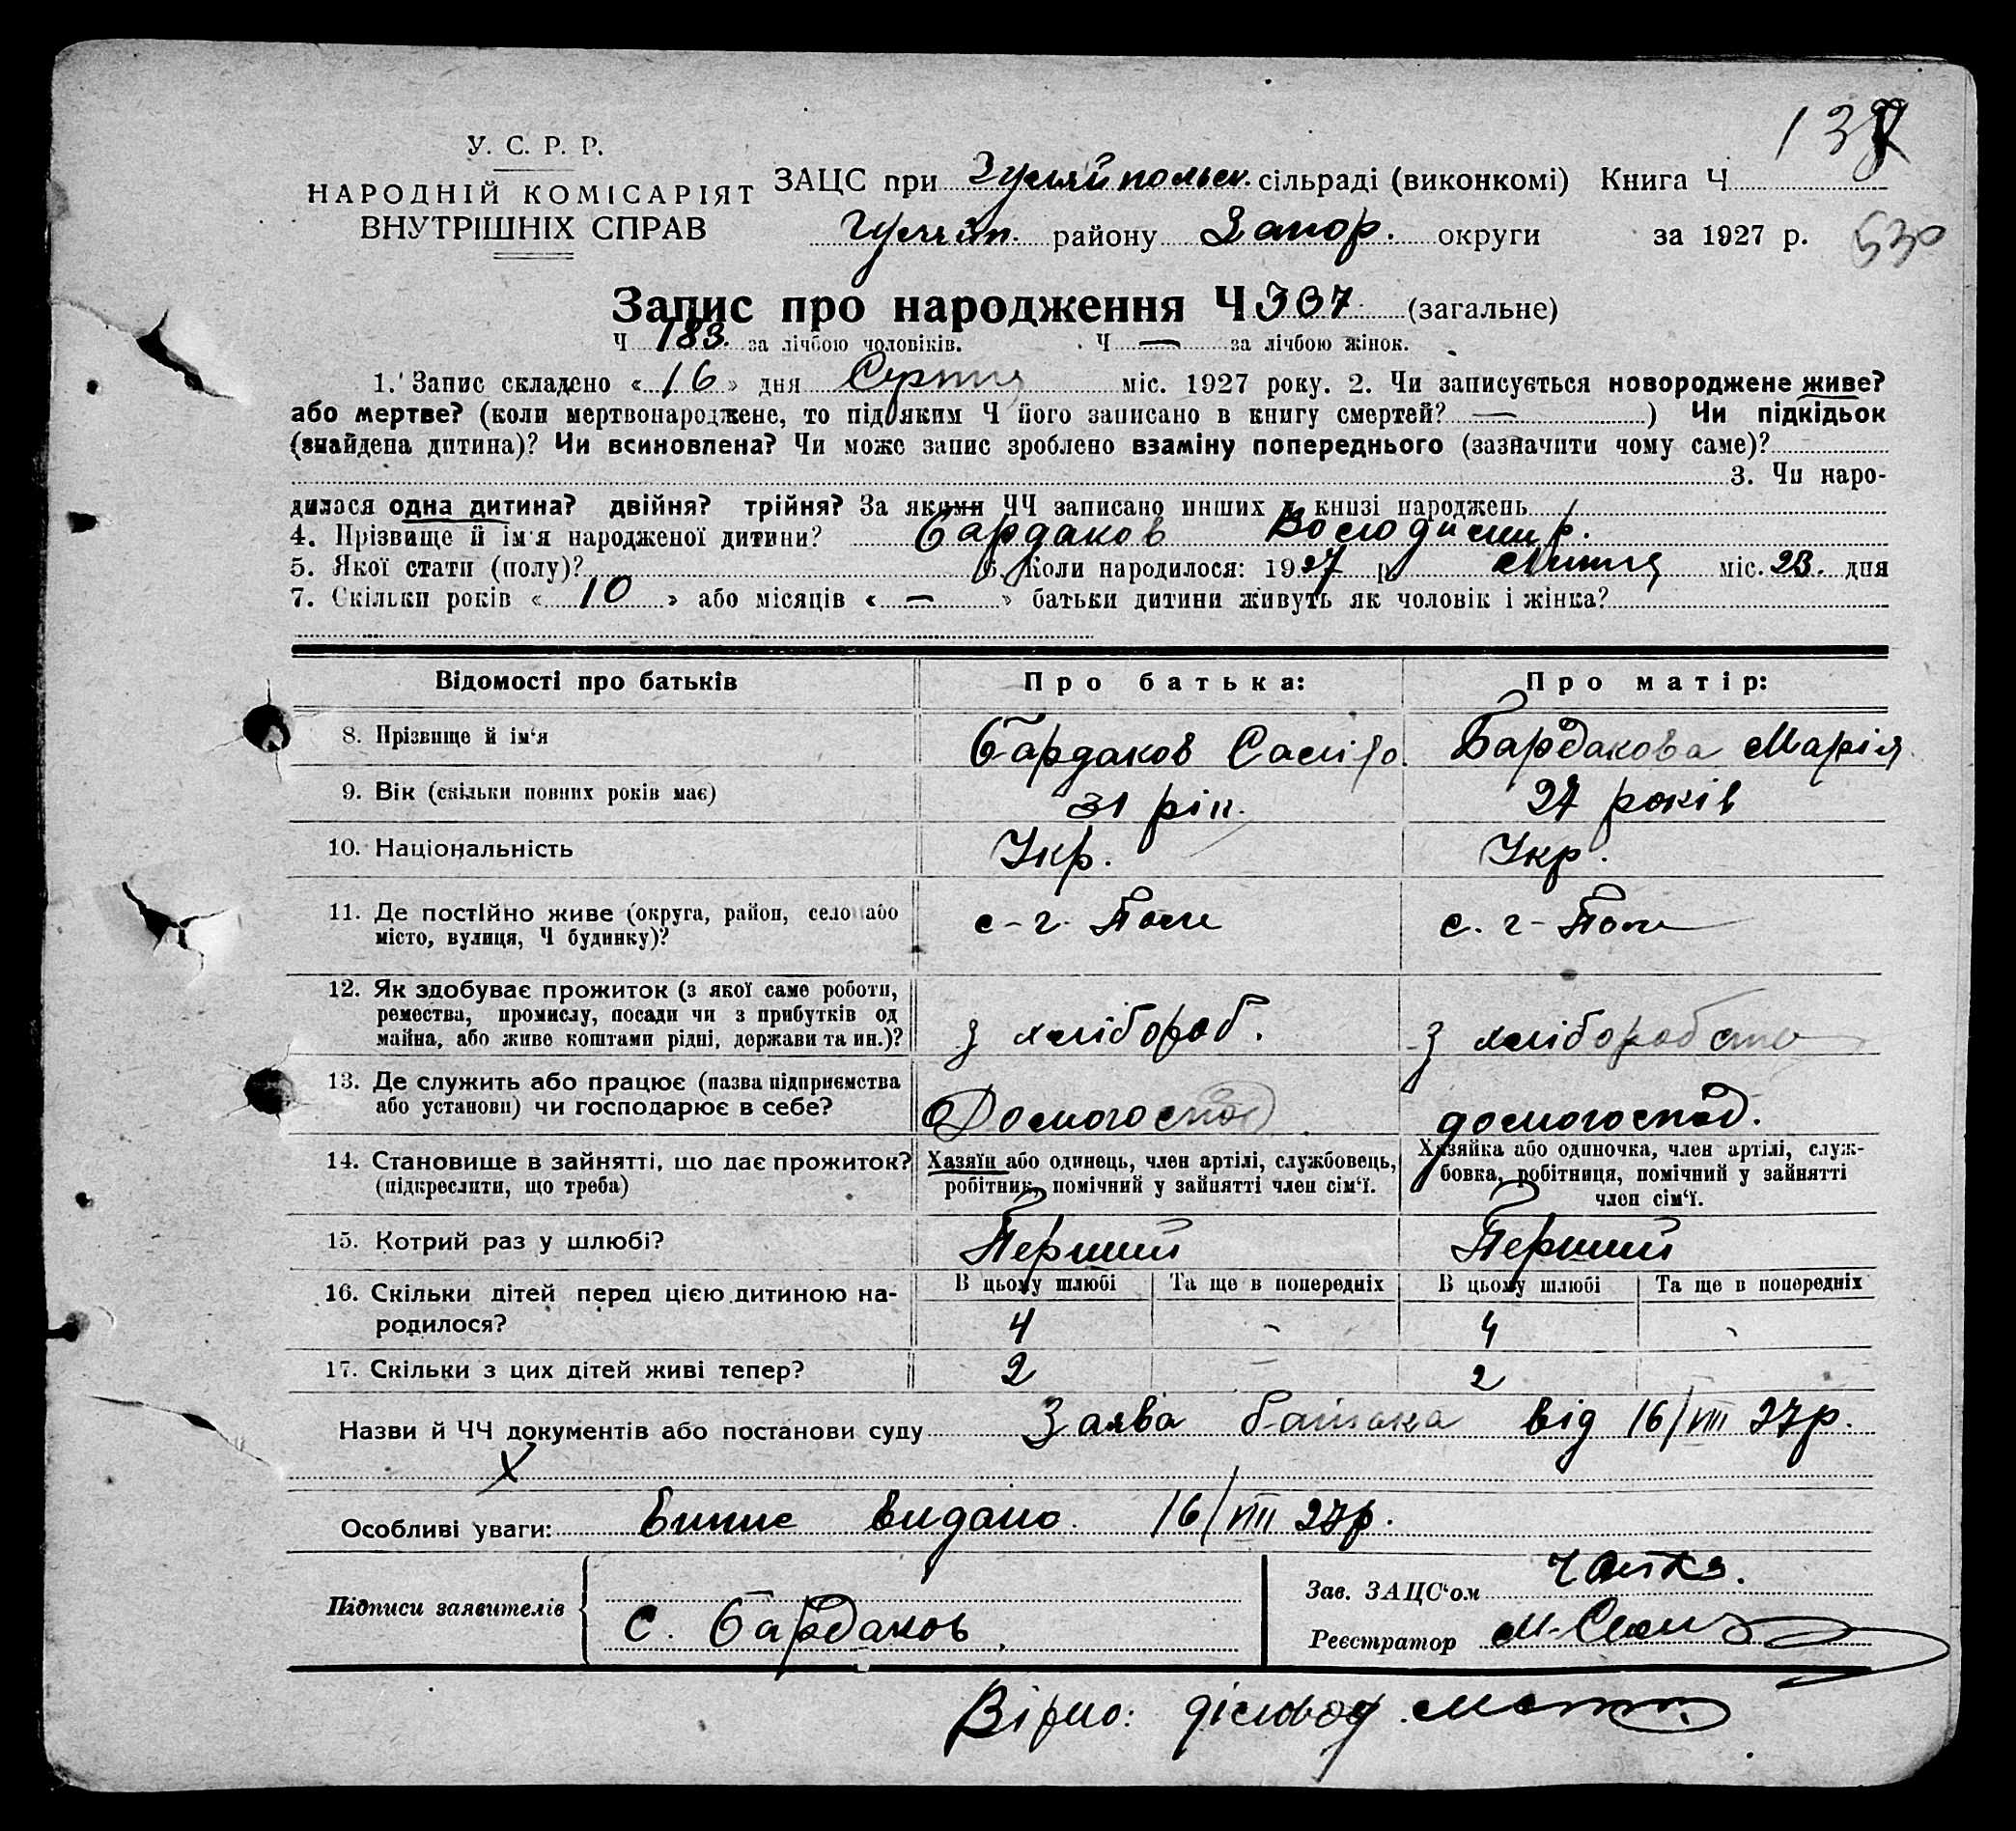 У. С. Р. Р.
НАРОДНІЙ КОМІСАРІЯТ
ВНУТРІШНІХ СПРАВ
ЗАЦС при Гуляйпольск. сільраді (виконкомі) Книга Ч
530
Гуляйп. району Запор. округи за 1927 р.
Запис про народження Ч 337 (загальне)
Ч 183 за лічбою чоловіків. Ч — за лічбою жінок.
1. Запис складено « 16 » дня Серпня міс. 1927 року. 2. Чи записується новороджене живе?
або мертве? (коли мертвонароджене, то під яким Ч його записано в книгу смертей? — ) Чи підкідьок
(знайдена дитина)? Чи всиновлена? Чи може запис зроблено взаміну попереднього (зазначити чому саме)?
3. Чи наро-
дилася одна дитина? двійня? трійня? За якими ЧЧ записано инших в книзі народжень
4. Прізвище й ім'я народженої дитини? Бардаков Володимир.
5. Якої стати (полу)? 6. Коли народилося: 1927 р. Липня міс. 23 дня
7. Скільки років « 10 » або місяців « — » батьки дитини живуть як чоловік і жінка?
Відомості про батьків Про батька: Про матір:
8. Прізвище й ім'я Бардаков Бардакова Марія
9. Вік (скільки повних років має) 31 рік. 27 років
10. Національність Укр. Укр.
11. Де постійно живе (округа, район, село або
місто, вулиця, Ч будинку)? с-г. Поле с. г-Поле
12. Як здобуває прожиток (з якої саме роботи,
ремества, промислу, посади чи з прибутків од
майна, або живе коштами рідні, держави та ин.)? з хлібороб. з хліборобства
13. Де служить або працює (назва підприємства
або установи) чи господарює в себе? Домогоспод домогоспод.
14. Становище в зайнятті, що дає прожиток?
(підкреслити, що треба)
Хазяїн або одинець, член артілі, службовець,
робітник, помічний у зайнятті член сім'ї.
Хазяйка або одиночка, член артілі, служ-
бовка, робітниця, помічний у зайнятті
член сім'ї.
15. Котрий раз у шлюбі? Перший Перший
16. Скільки дітей перед цією дитиною на-
родилося?
В цьому шлюбі Та ще в попередніх В цьому шлюбі Та ще в попередніх
4 - 4 -
17. Скільки з цих дітей живі тепер? 2 — 2
Назви й ЧЧ документів або постанови суду Заява батька від 16/VIII 27р.
Особливі уваги: Випис видано 16/VIII 27р.
Підписи заявителів
С. Бардаков.
Зав. ЗАЦС'ом
Реєстратор
Вірно: діловод